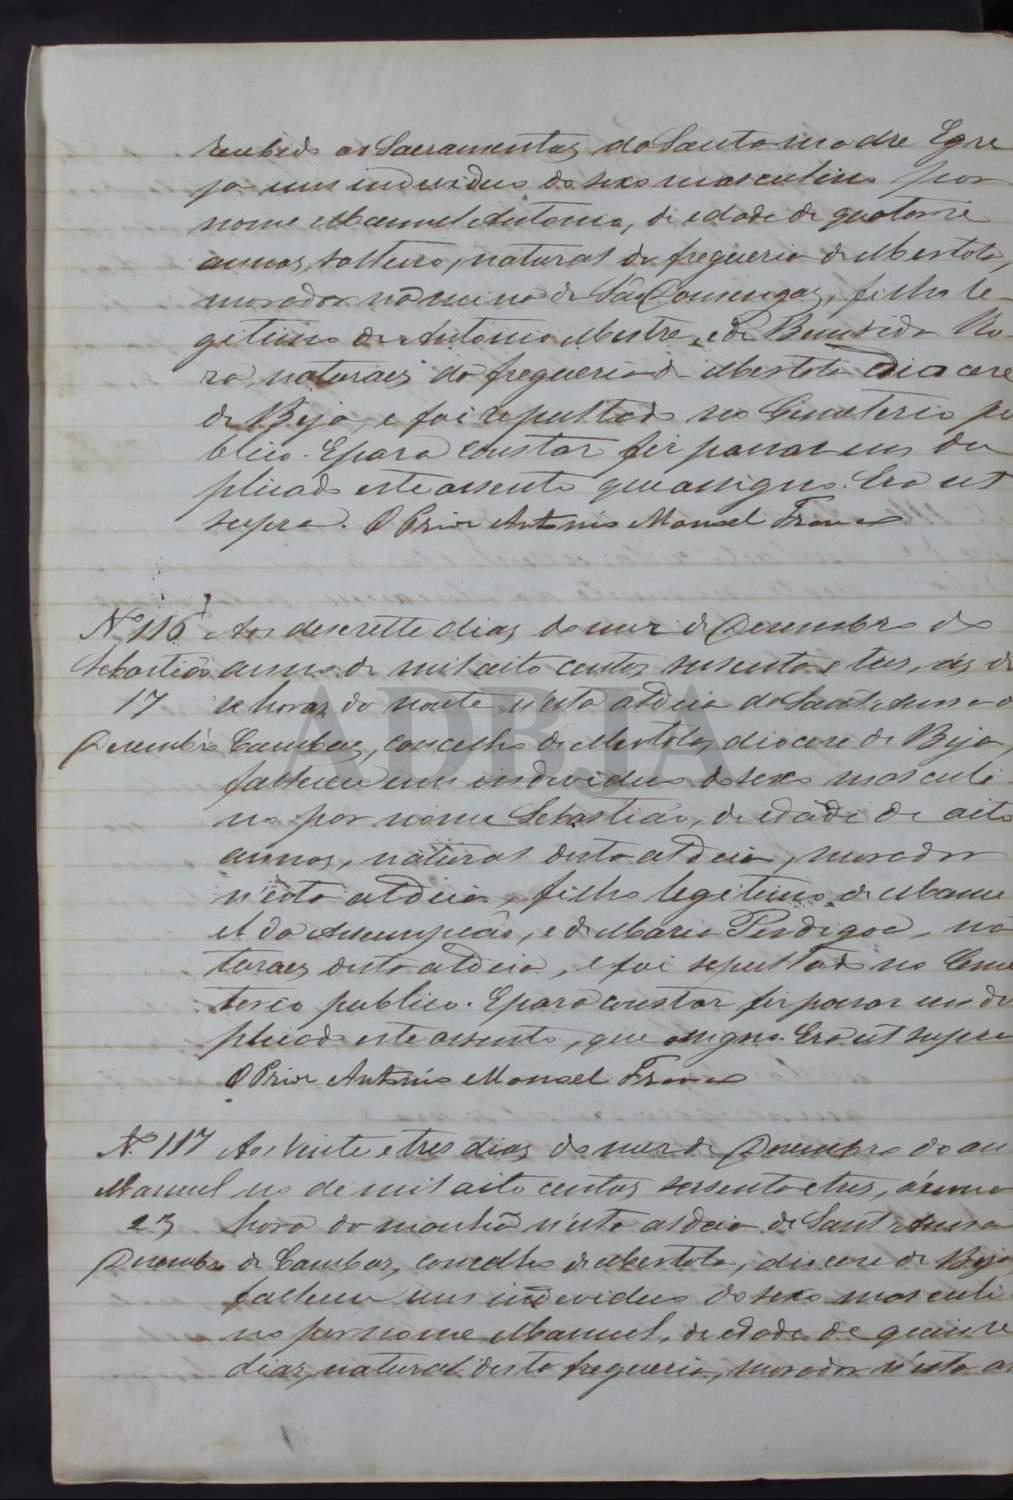 recebido os Sacramentos da Santa madre Egre
ja um individuo do sexo masculino por
nome Manuel Antonio, de edade de quatorze
annos, solteiro, natural da freguezia de Mertola,
morador na mina de São Domingos, filho le-
gitimo de Antonio Mestre, e de
naturaes da freguezia de Mertola diocese
de Beja, e foi sepultado no Cemeterio pu
blico. E para constar fiz passar em du
plicado este assento que assigno. Era ut
supra. O Prior Antonio Manoel Franco
Nº 116 Aos desesette dias do mez de Dezembro do
Sebastião anno de mil oito centos sessenta e tres, ás
17 horas da noute n'esta aldeia de Sant'Anna de
Dezembro Cambas, concelho de Mertola, diocese de Beja,
falleceu um individuo do sexo masculi
no por nome Sebastião, de edade de oito
annos, natural desta aldeia, morador
n'esta aldeia, filho legitimo de Manu
el da Assumpção, e de Maria Perdigoa, na
turaes desta aldeia, e foi sepultado no Ceme
terio publico. E para constar fiz passar em du
plicado este assento, que assigno. Era ut supra
O Prior Antonio Manoel Franco
Nº 117 Aos vinte e tres dias do mez de Dezembro do an
Manuel no de mil oito centos sessenta e tres, á uma
23 hora da manhã n'esta aldeia de Sant'Anna
Dezembro de Cambas, concelho de Mertola, diocese de Beja
falleceu um individuo do sexo masculi
no por nome Manuel, de edade de quinze
dias, natural desta freguezia, morador n'esta al
ADBJA